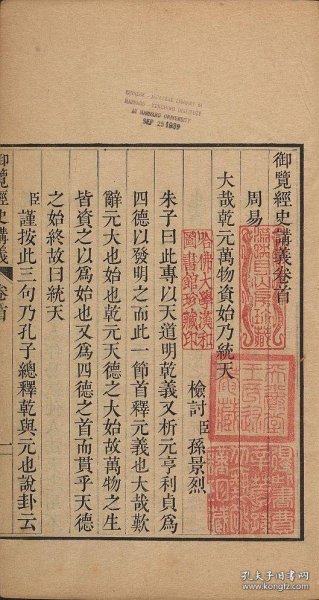 CHINESE - JAPANESE LIBRARY OF
HARVARD - YENCHING INSTITUTE
AT HARVARD UNIVERSITY
SEP 25 1939
御覽經史講義卷首
周易
大哉乾元萬物資始乃統天
檢討臣孫景烈
朱子曰此專以天道明乾義又析元亨利貞爲
四德以發明之而此一節首釋元義也大哉歎
辭元大也始也乾元天德之大始故萬物之生
皆資之以爲始也又爲四德之首而貫乎天德
之始終故曰統天
臣謹按此三句乃孔子總釋乾與元也說卦云
御覽經史講義
卷首
哈佛大學漢和
圖書館珍藏印
孔夫子旧书网